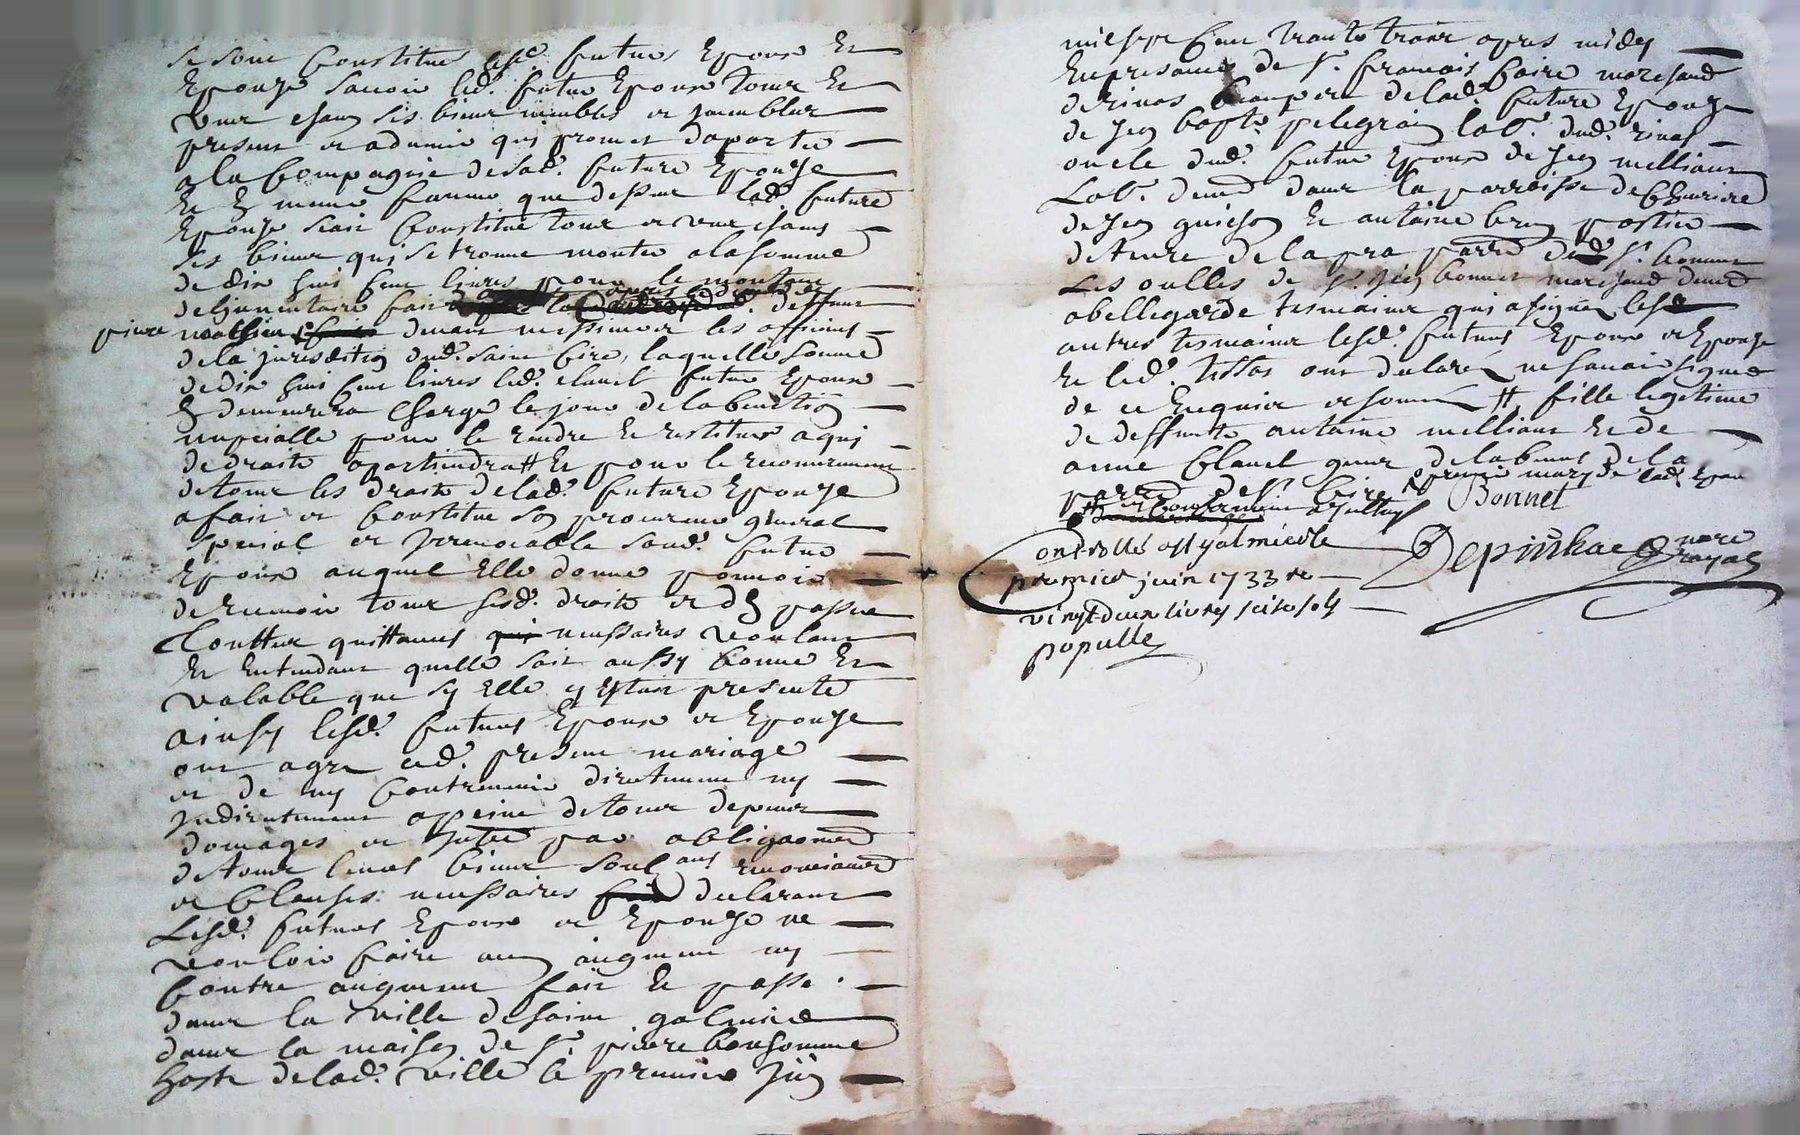 se sont Constitues lesd. futurs Epoux Et
Epouze sauoir led. futur Epoux touts Et
vns chacuns ses biens meubles et jmeubles
presents et aduenir qui promet daporter
a la Compagnie de lad. future Epouze
Et En meme forme que dessus lad. future
Epouze s'est Constitué tous et vns chacuns
ses biens qui se trouue monter a la somme
de dix huit cent liures pour le montant
de linuentaire fait deffunt
pierre mathieu deuant messieurs les officiers
de la jurisdition dud. saint Cire, laquelle somme
de dix huit cent liures led. clauel futur Epoux
En demeurera Chargé le jour de la benedition
nuptialle pour le rendre Et restituer a qui
de droits apartiendra # Et pour le recouurement
de tous les droits de lad. future Epouze
a fait et Constitue son procureur general
special et jrreuocable sond. futur
Epoux auquel Elle donne pouuoir
de receuoir tous sesd. droits et d'En passer
touttes quittances necessaires voulant
Et Entendant quelle soit aussy bonne Et
valable que sy Elle y Estoit presente
ainsy lesd. futurs Epoux et Epouze
ont agree led. present mariage
et de ny Contreuenir directement ny
jndirectement a peine de tous depens
domages et jnterets par obligaoned
de tous leurs biens soubans renonciaoned
et Clauses necessaires declarant
Lesd. futurs Epoux et Epouze ne
vouloir faire aucun augment ny
Contre augment fait Et passé
dans la ville de saint galmier
dans la maison de sr. pierre bonhomme
hoste de lad. ville le premier juin
mil sept Cent trante troix apres midy
En presance de sr. francois faire marchand
de riuas beaupere de lad. future Epouze
de jean bapte. pelegrain lab. dud. riuas
oncle dud. futur Epoux de jean milliant
Lab. demt dans la parroisse de Cheuriere
de jean guichon Et antoine brun postier
de terre de la pra parred dud. sr. bonnet
Les oulles de sr. jean bonnet marchand demt
a bellegarde tesmoins qui a signez lesd.
autres tesmoins lesd. futurs Epoux et Epouze
Et led. tissot ont declaré ne sauoir signer
de ce Enquis et sommé # fille legitime
de deffunts antoine milliant Et de
anne Clauel qui de
parred de st. Cire premier mary de lad. Epouze
Bonnet
ontrollé a st galmier le
Depinhac nore royal
premier juin 1733 re
vingt deux liures seise sols
populle